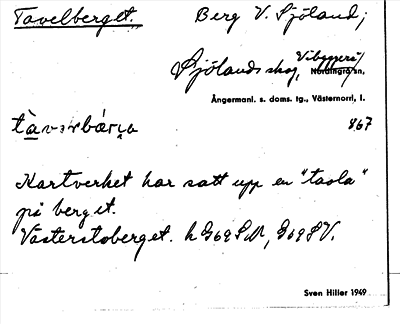 Tavelberget. Berg V. Sjöland;
Sjölandsskog, Vibyggerå
Nordingrå sn,
Ångermanl. s. doms. tg., Västernorrl, l.
867
Kartverket har satt upp en "tavla"
på berget.
Västerstoberget.
Sven Hiller 1949